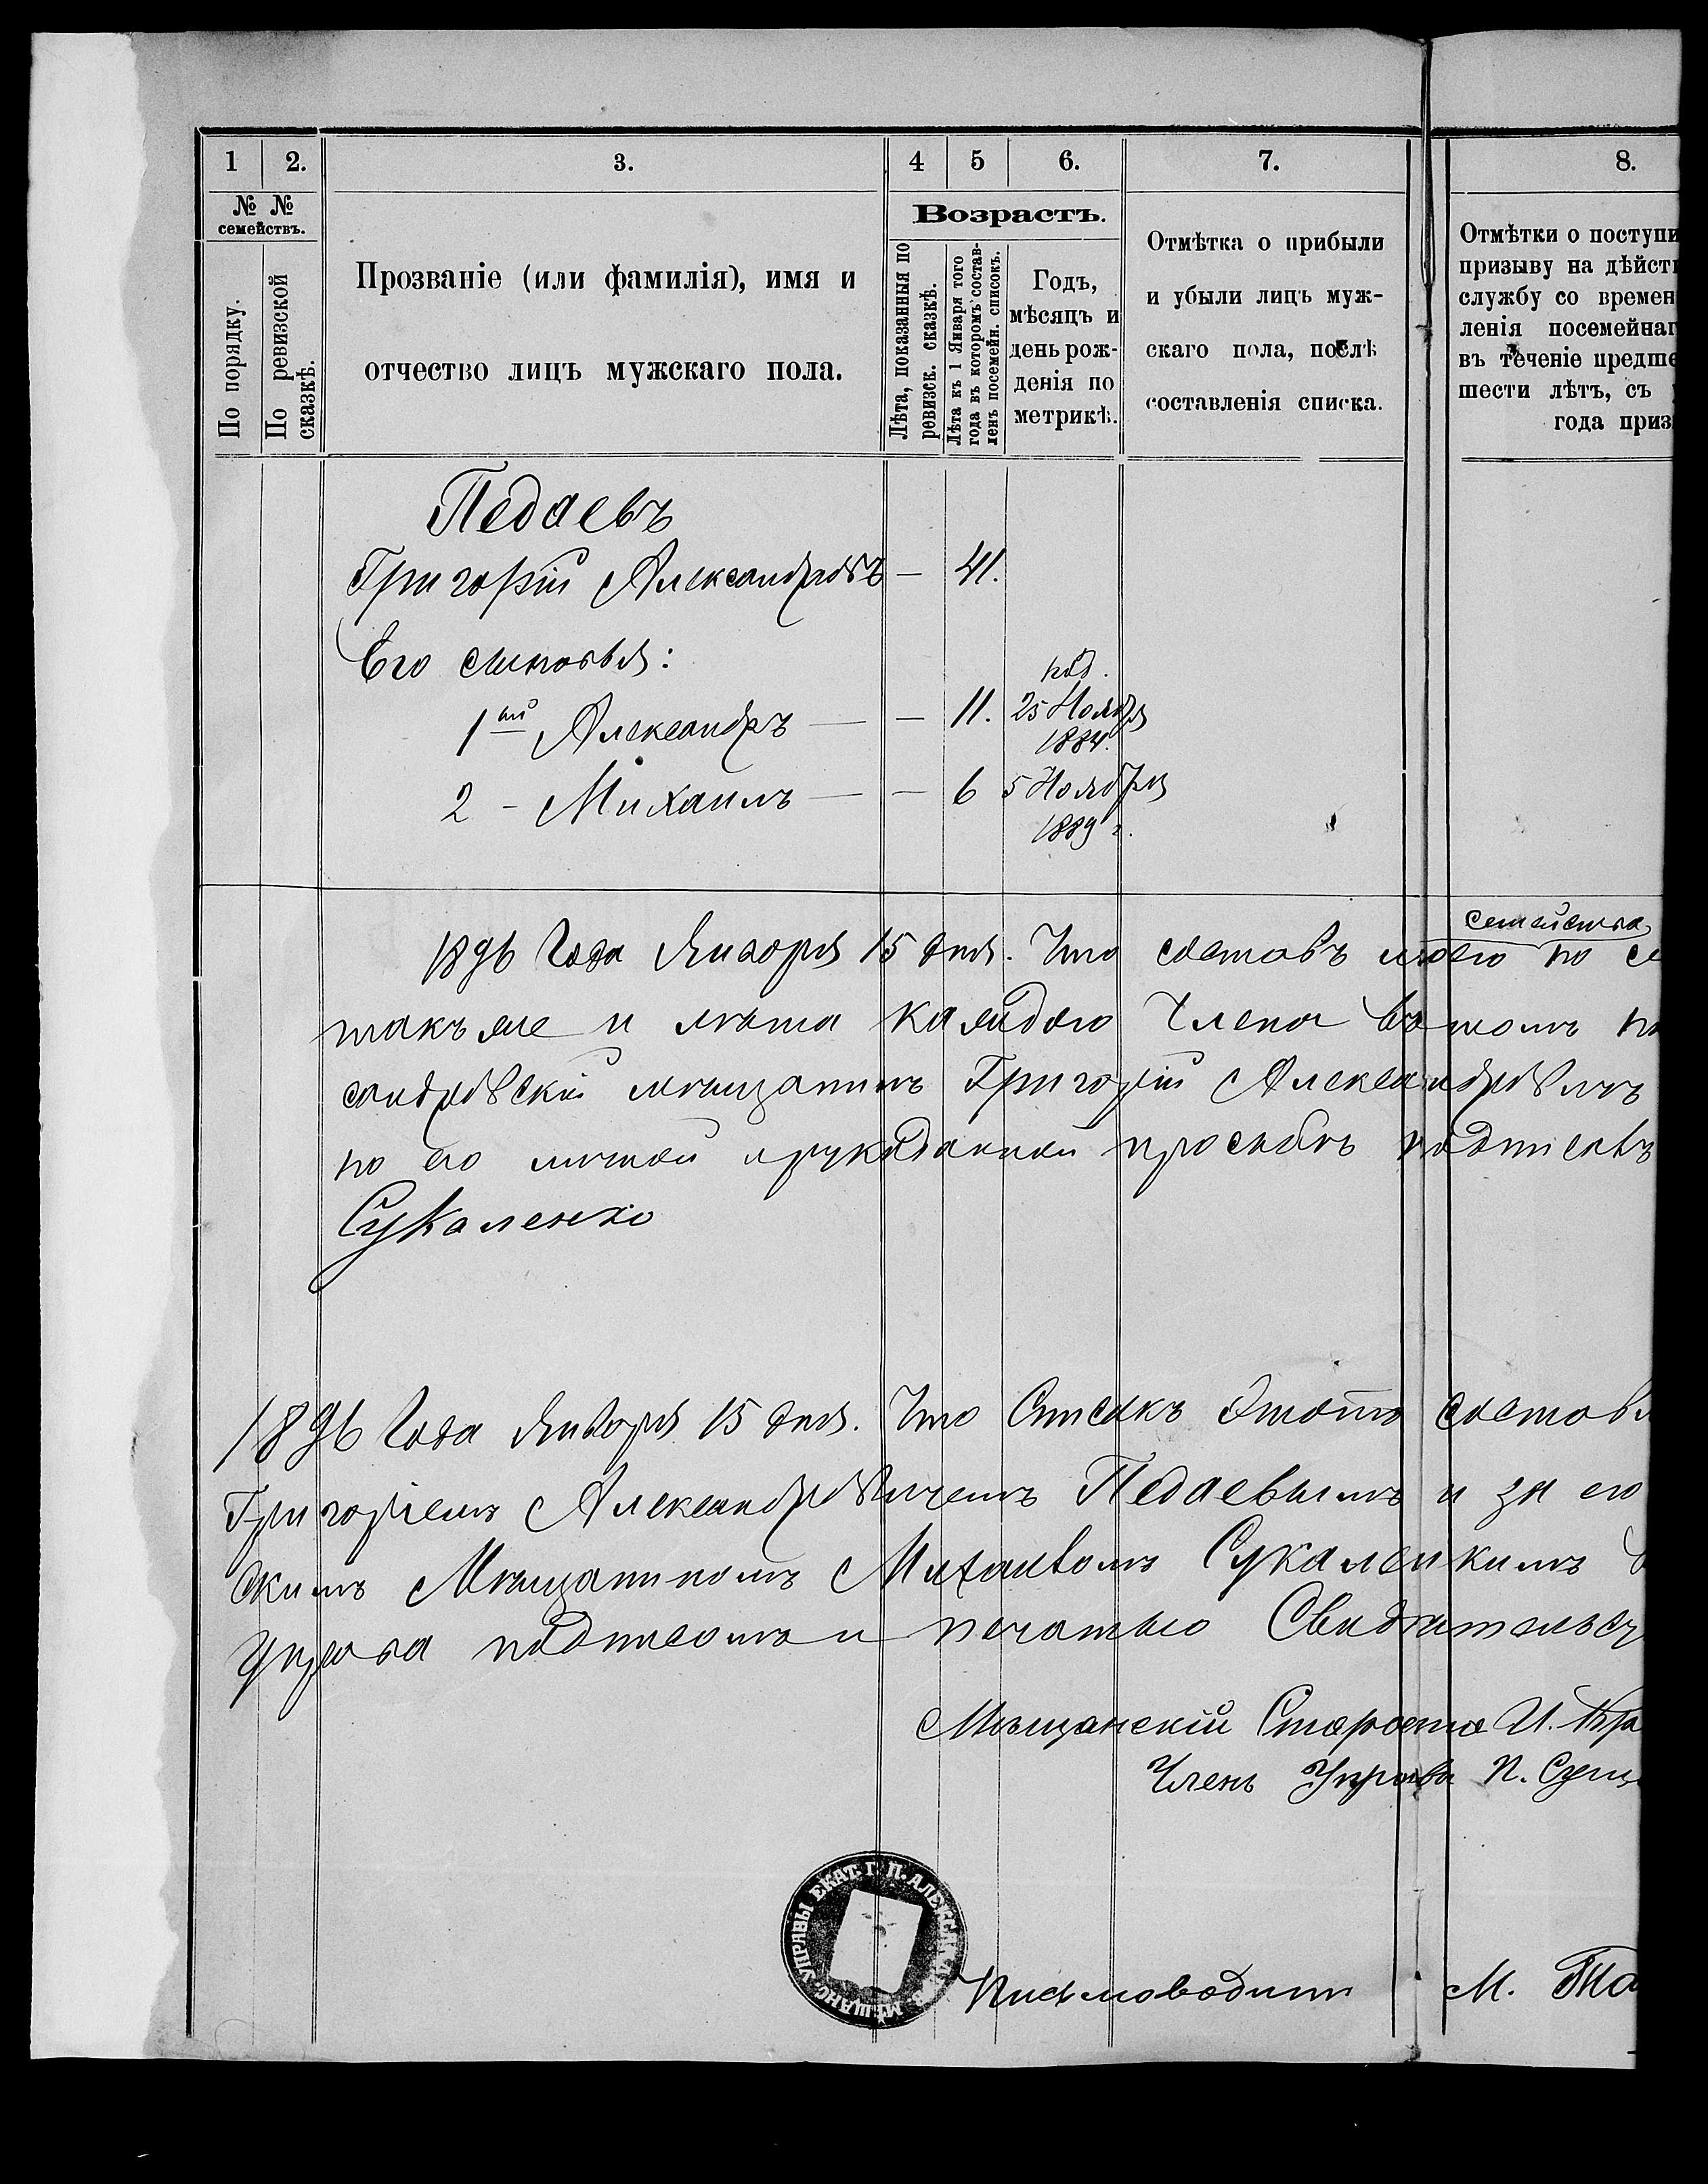 1 2. 3. 4 5 6. 7. 8.
№ № семействъ.
По порядку.
По ревизской сказкѣ.
Прозваніе (или фамилія), имя и
отчество лицъ мужскаго пола.
Возрастъ.
Лѣта, показанныя по ревизск. сказкѣ.
Лѣта къ 1 Января того года въ которомъ составленъ посемейн. списокъ.
Годъ,
мѣсяцъ и
день рож-
денія по
метрикѣ.
Отмѣтка о прибыли
и убыли лицъ муж-
скаго пола, послѣ
составленія списка.
Отмѣтки о поступи
призыву на дѣйст
службу со времен
ленія посемейнаг
въ теченіе предше
шести лѣтъ, съ
года приз
Педаевъ
Григорій Александровъ — 41.
Его сыновья:
1ый Александръ — — 11. 25 Ноября
1884.
2 - Михаилъ — — 6 5 Ноября
1889 г.
семейства
1896 Года Января 15 дня. Что составъ моего по
такъ же и лѣта каждаго Члена въ томъ
сандровскій мѣщанинъ Григорій Александровичъ
по его личной и рукоданной просьбѣ подписавъ
Сукаленко
1896 Года Января 15 дня. Что Списокъ Этотъ составл
Григоріемъ Александровичемъ Педаевымъ и за его
скимъ Мѣщаниномъ Михаиломъ Сукаленкимъ
Управа подписомъ и печатью Свидѣтельсту
Мѣщанскій Староста И. Кра
Членъ Управы П. Сущ
МѢЩАНС. УПРАВЫ ЕКАТ. Г. П. АЛЕКСАНДРОВ.
Письмоводит М. Та